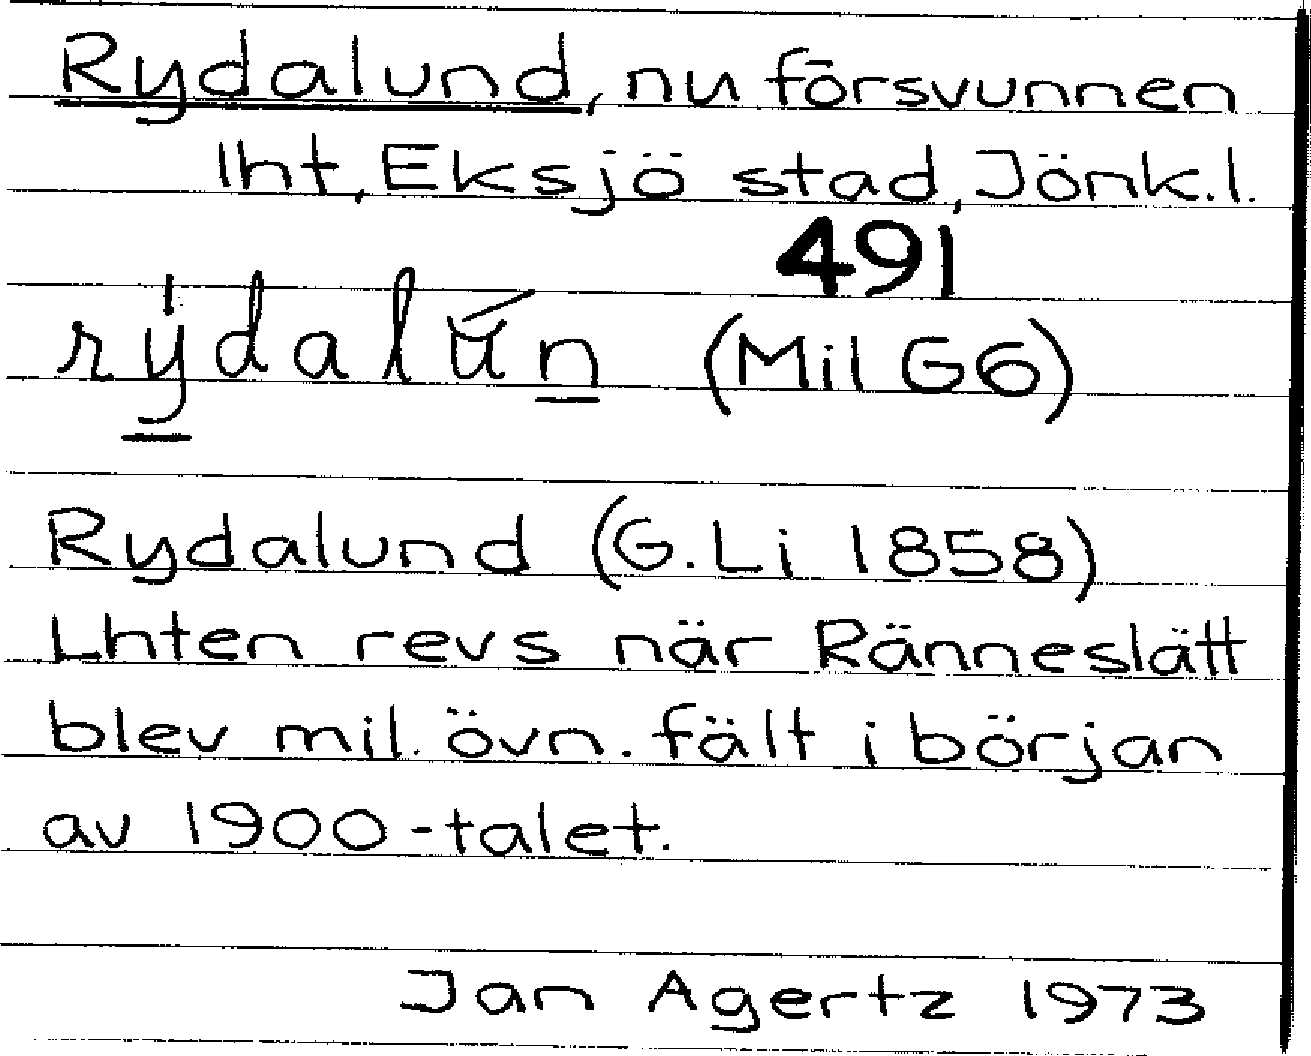 Rydalund, nu försvunnen
lht, Eksjö stad, Jönk.l.
491
rydalun (Mil G6)
Rydalund (G.Li 1858)
Lhten revs när Ränneslätt
blev mil. övn. fält i början
av 1900-talet.
Jan Agertz 1973